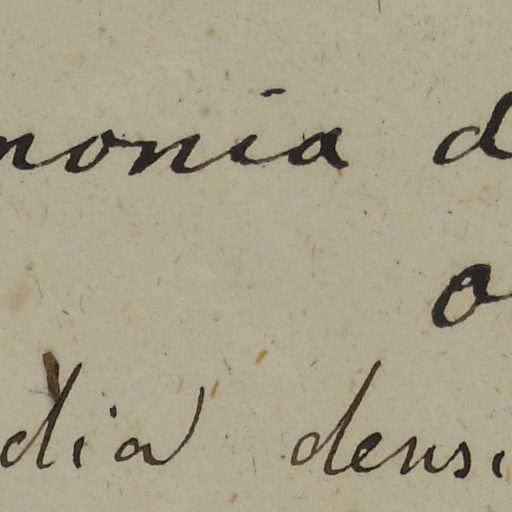 monia d
o
dia densi